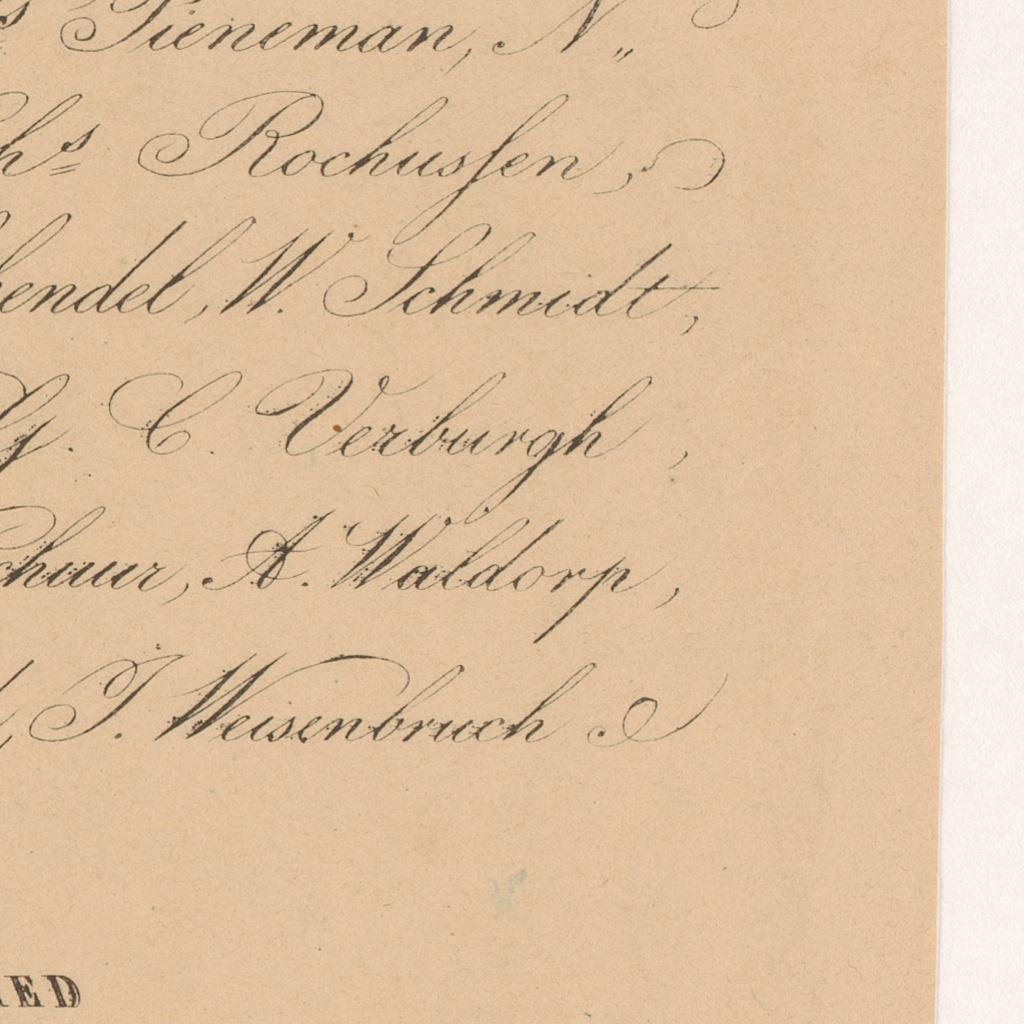 Pieneman, N„
Chs Rochussen,
hendel, W. Schmidt,
G. C. Verburgh,
Schuur, A. Waldorp,
J. Weisenbruch &